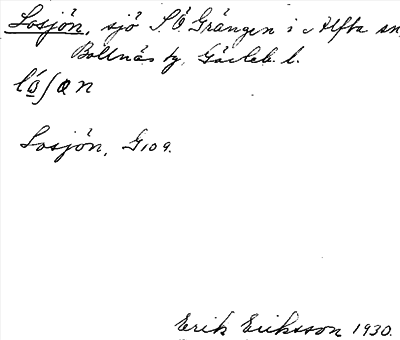 Losjön, sjö S.Ö. Grängen i Alfta sn,
Bollnäs tg, Gävleb. l.
lósjön, G109.
Erik Eriksson 1930.